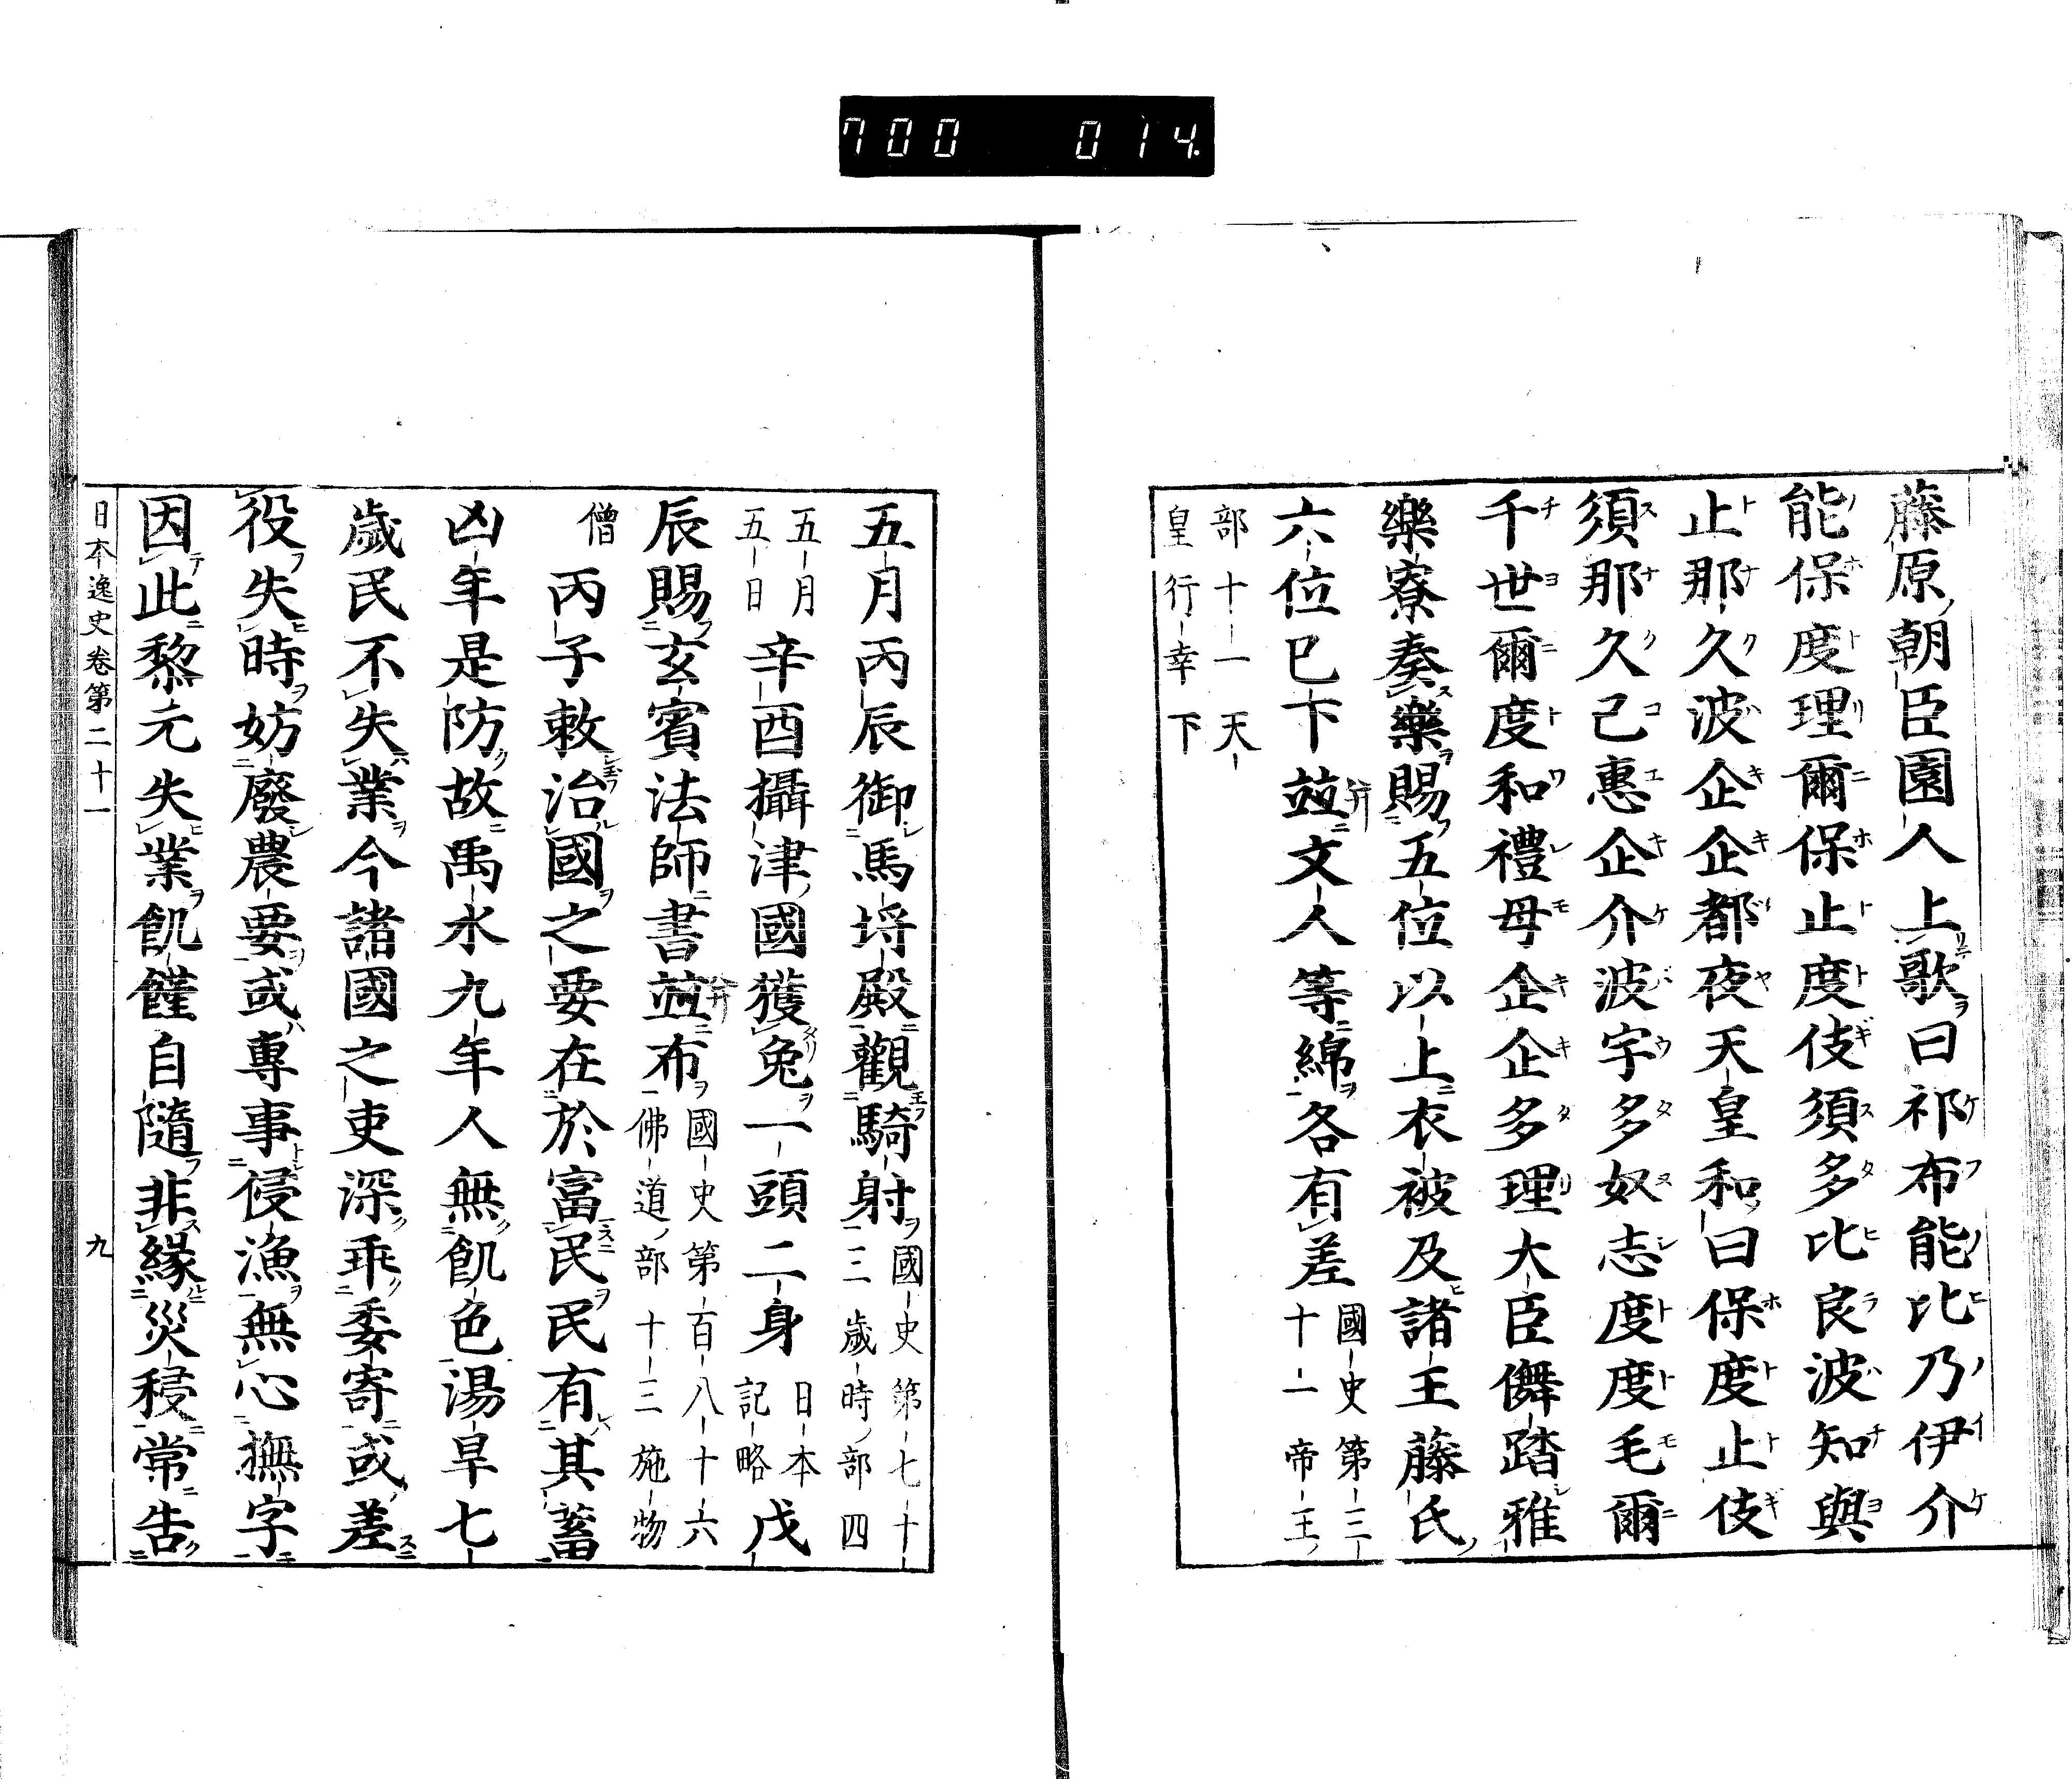 700 014
藤原朝臣園人上歌曰祁布能比乃伊介
能保度理爾保止度伎須多比良波知與
止那久波企企都夜天皇和曰保度止伎
須那久己惠企介波宇多奴志度度毛爾
千世爾度和禮母企企多理大臣儛踏雅
樂寮奏樂賜五位以上衣被及諸王藤氏
六位已下並文人等綿各有差國史第三
十一帝王
部十一天
皇行幸下
五月丙辰御馬埒殿觀騎射國史第七十
三歲時部四
五月
五日辛酉攝津國獲兔一頭二身日本
記略戊
辰賜玄賓法師書並布國史第百八十六
佛道部十三施物
僧丙子敕治國之要在於富民民有其蓄
凶年是防故禹水九年人無飢色湯旱七
歲民不失業今諸國之吏深乖委寄或差
役失時妨廢農要或專事侵漁無心撫字
因此黎元失業飢饉自隨非緣災祲常告
日本逸史卷第二十一 九